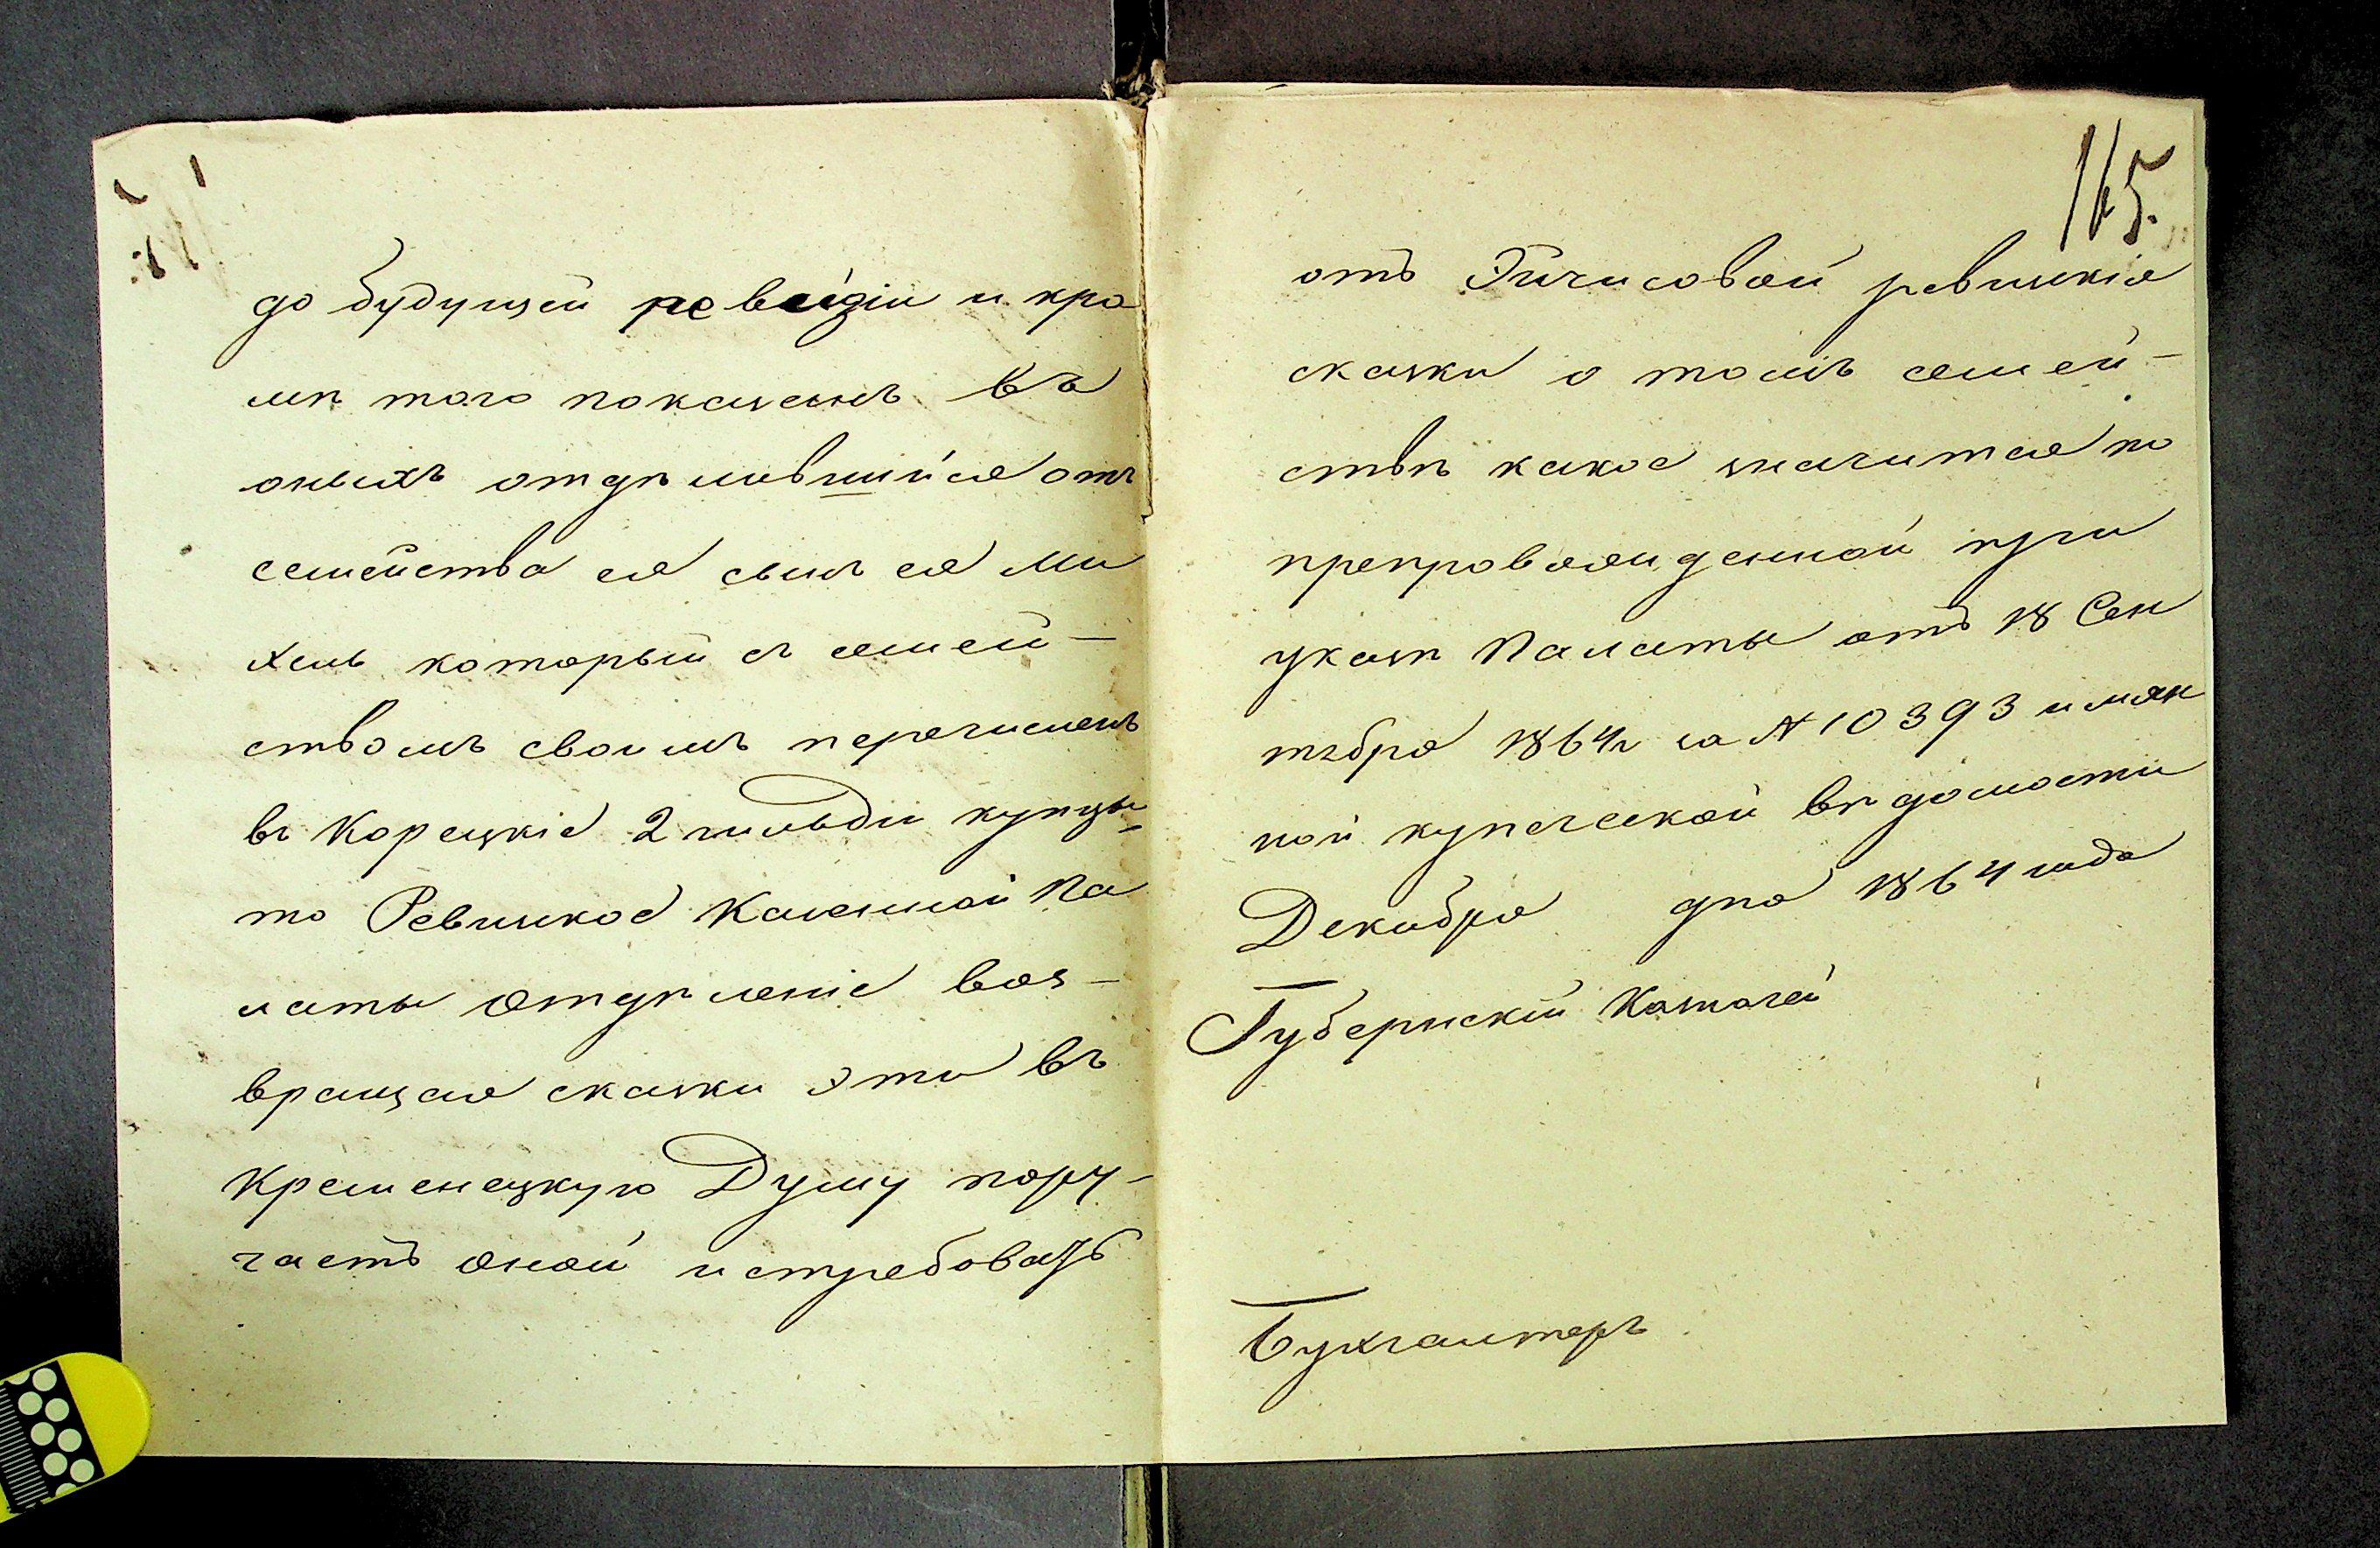 до будущей ревизіи и кро
мѣ того показанъ въ
оныхъ отдѣлившійся отъ
семейства ея сынъ ея Ми
хель который съ семей-
ствомъ своимъ перечисленъ
въ Корецкіе 2 гильдіи купцы
то Ревизкое Казенной Па
латы Отдѣленіе воз-
вращая сказки эти въ
Кременецкую Думу пору-
чаетъ оной истребовать
165.
отъ Эйчисовой ревизкія
сказки о томъ семей-
ствѣ какое значится по
препровожденной при
указѣ Палаты отъ 18 Сен
тября 1864 г за N 10393 имян
ной купеческой вѣдомости
Декабря дня 1864 года
Губернскій Казначей
Бухгалтеръ